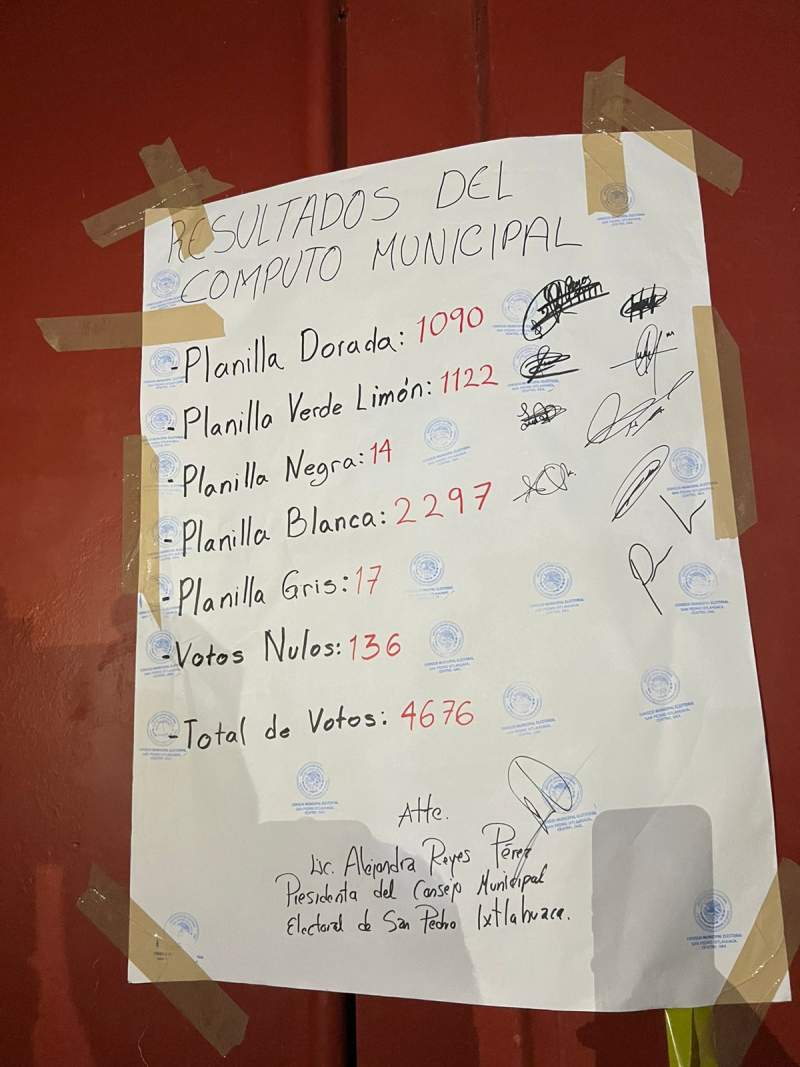 RESULTADOS DEL
COMPUTO MUNICIPAL
-Planilla Dorada: 1090
-Planilla Verde Limón: 1122
-Planilla Negra: 14
-Planilla Blanca: 2297
-Planilla Gris: 17
-Votos Nulos: 136
-Total de Votos: 4676
Atte.
Lic. Alejandra Reyes Pérez
Presidenta del Consejo Municipal
Electoral de San Pedro Ixtlahuaca.